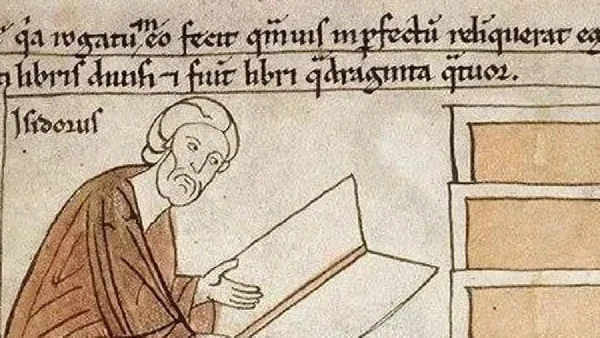 q̇a rogatu ͫeo fecit qͣmuis inꝑfectū reliq̇erat
libris diuisi ⁊ fuīt libri qͣdraginta qͣtuor.
Isidorus